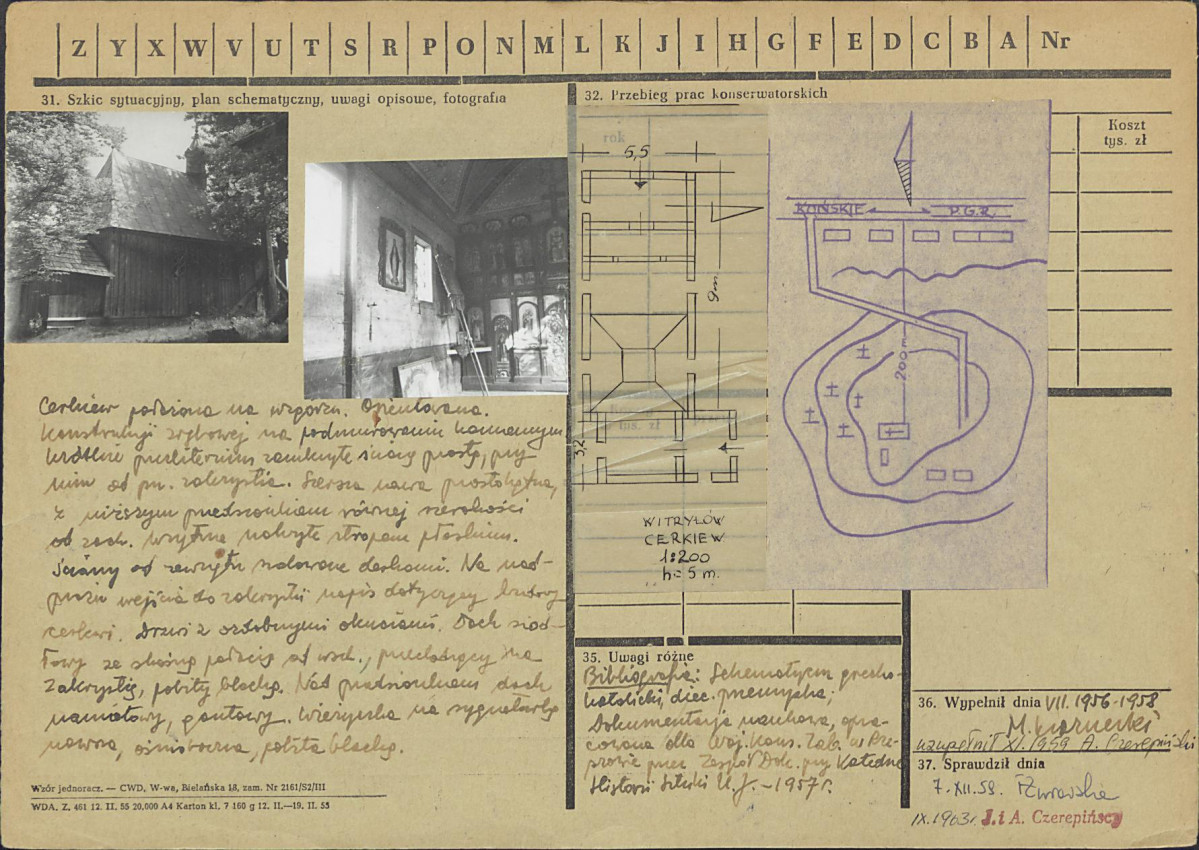 Z Y X W V U T S R P O N M L K J I H G F E D C B A Nr
31. Szkic sytuacyjny, plan schematyczny, uwagi opisowe, fotografia
Cerkiew położona na wzgórzu. Orientowana.
Konstrukcji zrębowej na podmurowaniu kamiennym
krótkie prezbiterium zamknięte ścianą prostą, przy
nim od pn. zakrystia. Szersza nawa prostokątna,
z niższym przedsionkiem równej szerokości
od zach. Wnętrze nakryte stropem płaskim.
Ściany od zewnątrz szalowane deskami. Na nad-
prożu wejścia do zakrystii napis dotyczący budowy
cerkwi. Drzwi z ozdobnymi okuciami. Dach siod-
łowy ze skośną połacią od wsch., przechodzący na
zakrystię, pobity blachą. Nad przedsionkiem dach
namiotowy, gontowy. Wieżyczka na sygnaturkę
nowsza, ośmioboczna, pobita blachą.
Wzór jednoracz. — CWD, W-wa, Bielańska 18, zam. Nr 2161/S2/III
WDA. Z. 461 12. II. 55 20,000 A4 Karton kl. 7 160 g 12. II.—19. II. 55
32. Przebieg prac konserwatorskich
rok
Koszt
tys. zł
5,5
9m
3,2
tys. zł
WITRYŁÓW
CERKIEW
1:200
h = 5 m.
KOŃSKIE
P.G.R.
200 m
35. Uwagi różne
Bibliografia: Schematyzm grecko-
katolicki, diec. przemyska;
Dokumentacja naukowa, opra-
cowana dla Woj. Kons. Zab. w Rze-
szowie przez Zespół Dok. przy Katedrze
Historii Sztuki U.J. – 1957 r.
36. Wypełnił dnia VII. 1956-1958
M. Kornecki
uzupełnił XI. 1959 A. Czerepiński
37. Sprawdził dnia
7. XII. 58.
IX. 1963 r. J. i A. Czerepińscy